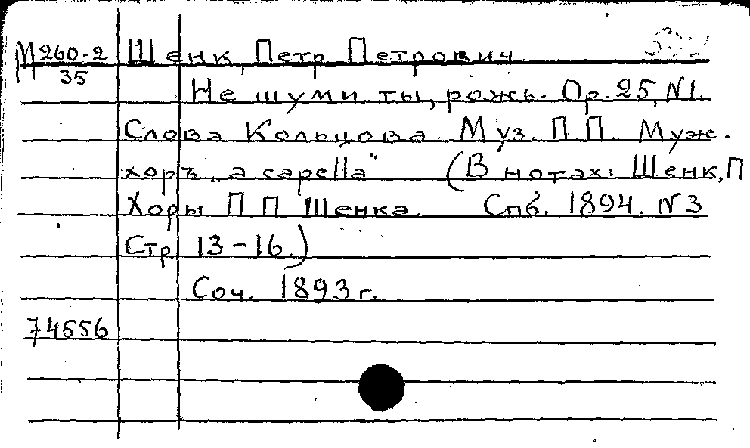 М 260-2 Шенк, Петр Петрович
35
Не шуми ты, рожь. Ор. 25, N1.
Слова Кольцова. Муз. П П. Муж.
хоръ „a capella" (В нотах: Шенк, П
Хоры П П Шенка. Спб. 1894. N 3
Стр 13-16.)
Соч. 1893 г.
74556